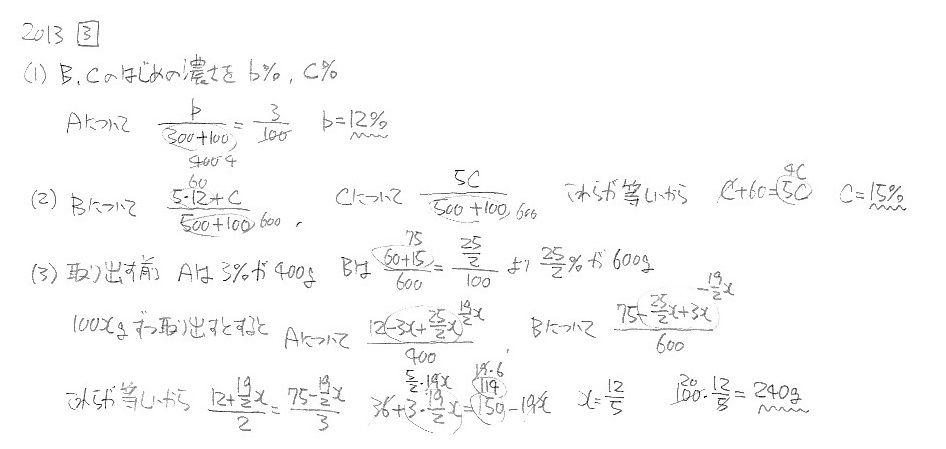 2013 [3]
(1) B, Cのはじめの濃さを b%, C%
Aについて b/(300+100) = 3/100 b=12%
400 4
(2) Bについて (5・12+C)/(500+100) 60 600, Cについて 5C/(500+100) 600 これらが等しいから C+60=5C 4C C=15%
(3) 取り出す前 Aは3%が400g Bは (60+15)/600 75 = (25/2)/100 より 25/2%が600g
100xgずつ取り出すとすると Aについて (12-3x+25/2x)/400 19/2x, Bについて (75-25/2x+3x)/600 -19/2x
これらが等しいから (12+19/2x)/2 = (75-19/2x)/3 36+3・19/2x=150-19x 5/2・19x 19・6 114 x=12/5 100・12/5=240g 20